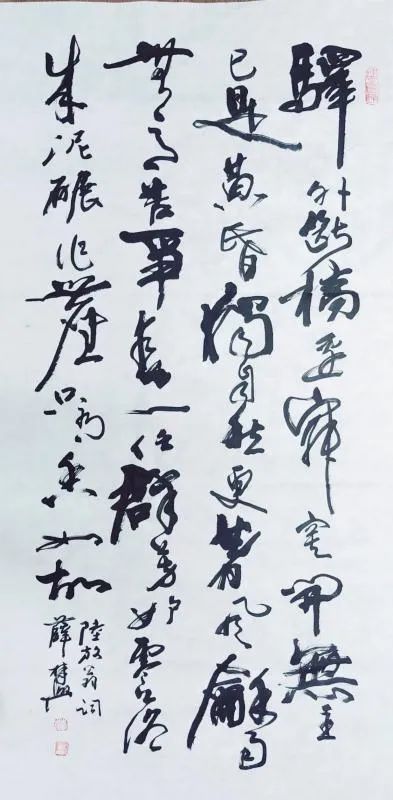 驛外斷橋邊寂寞開無主
已是黃昏獨自愁更著風龢雨
無意苦爭春一任群芳妒零落
成泥碾作塵只有香如故
陸放翁詞
薛